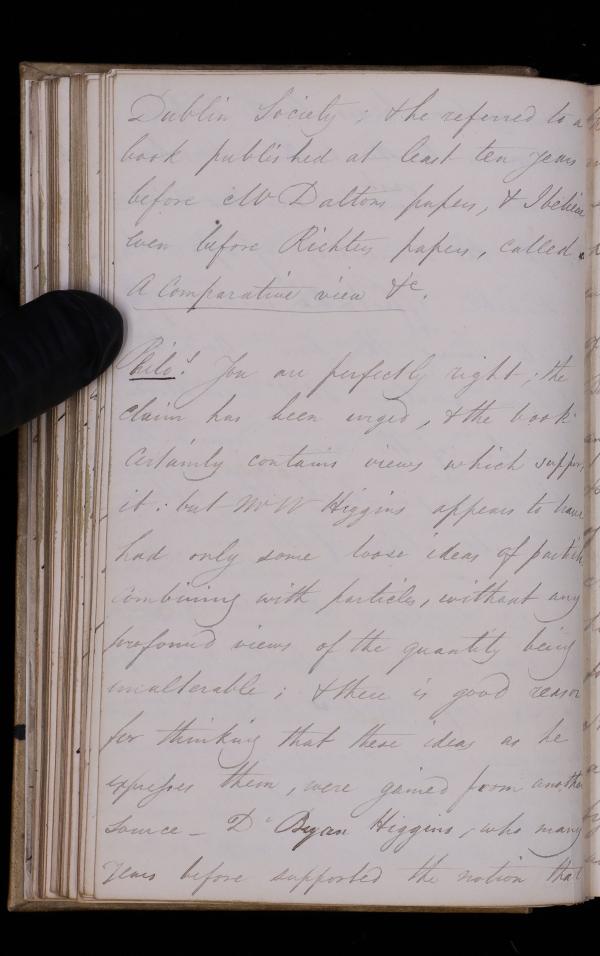 Dublin Society; & he referred to a
book published at least ten years
before Mr Daltons papers, & I believe
even before Richters papers, called
A Comparative view &c.
Philo! You are perfectly right; the
claim has been urged, & the book
certainly contains views which suppor
it: but Mr W Higgins appears to have
had only some loose ideas of particles
combining with particles, without any
profound views of the quantity being
unalterable; & there is good reason
for thinking that these ideas as he
expresses them, were gained from another
source – Dr Bryan Higgins, who many
years before supported the notion that